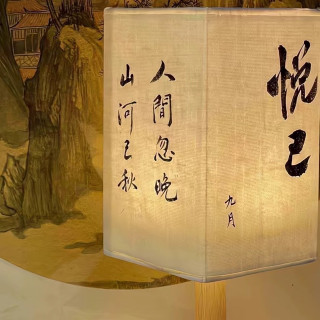 悦己
人間忽晚
山河已秋
九月